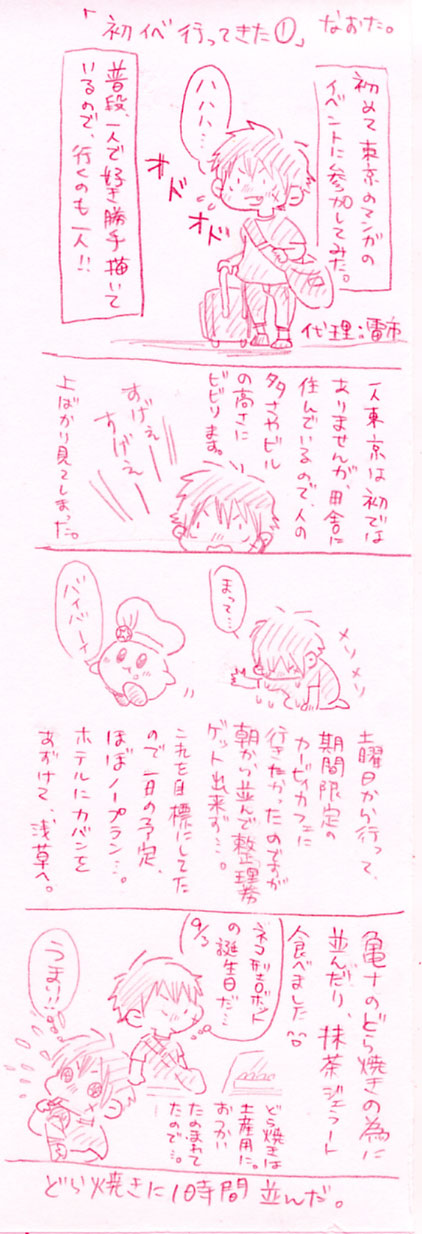 「初イベ行ってきた①」なおた。
初めて東京のマンガの
イベントに参加してみた。
ハハハ…
オド
オド
普段、一人で好き勝手描いて
いるので、行くのも一人!!
代理:雷市
一人東京は初では
ありませんが、田舎に
住んでいるので、人の
多さやビル
の高さに
ビビります。
すげえ
すげえ
上ばかり見てしまった。
メソメソ
まって…
バイバーイ
土曜日から行って、
期間限定の
カービィカフェに
行きたかったのですが
朝から並んで整理券
ゲット出来ず…。
これを目標にしてた
ので一日の予定、
ほぼノープラン…。
ホテルにカバンを
あずけて、浅草へ。
亀十のどら焼きの為に
並んだり、抹茶ジェラート
食べました^^
9/3
ネコ型ロボット
の誕生日だ…
どら焼きは
土産用に。
おつかい
たのまれて
たので…。
うまい!!
どら焼きに1時間並んだ。